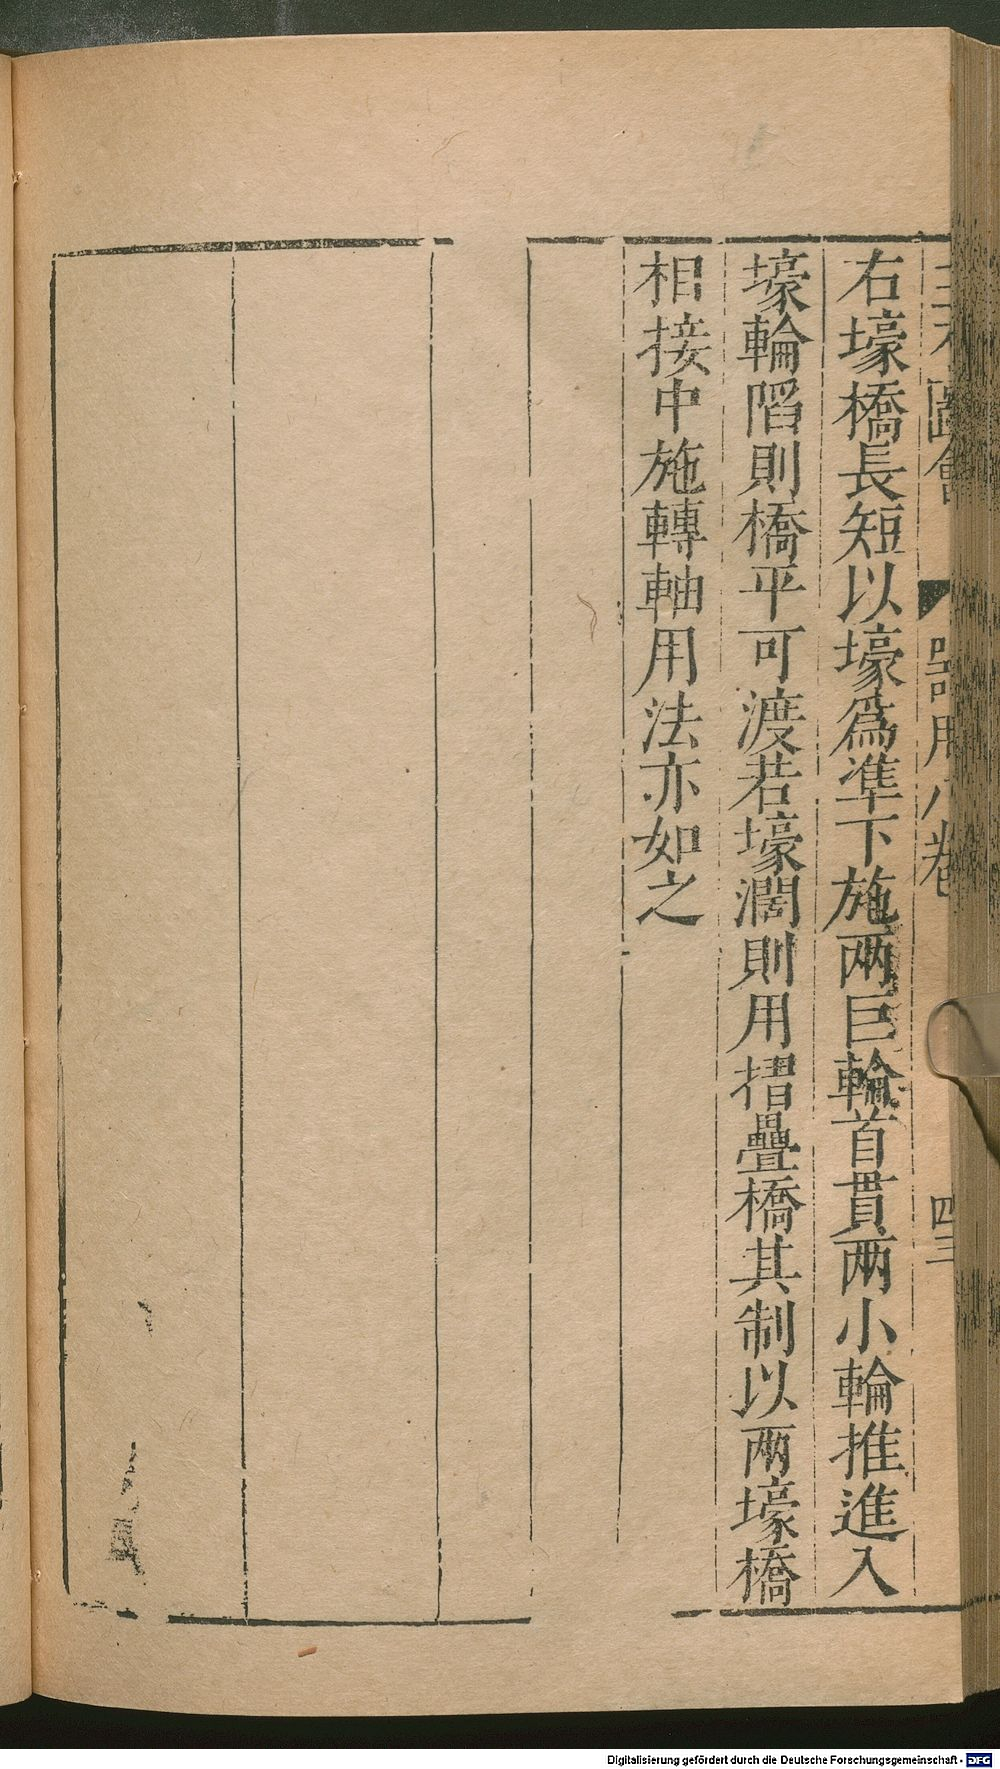 三才圖會 器用八卷 四三
右壕橋長短以壕爲凖下施两巨輪首貫两小輪推進入
壕輪陷則橋平可渡若壕濶則用摺疊橋其制以两壕橋
相接中施轉軸用法亦如之
Digitalisierung gefördert durch die Deutsche Forschungsgemeinschaft - DFG